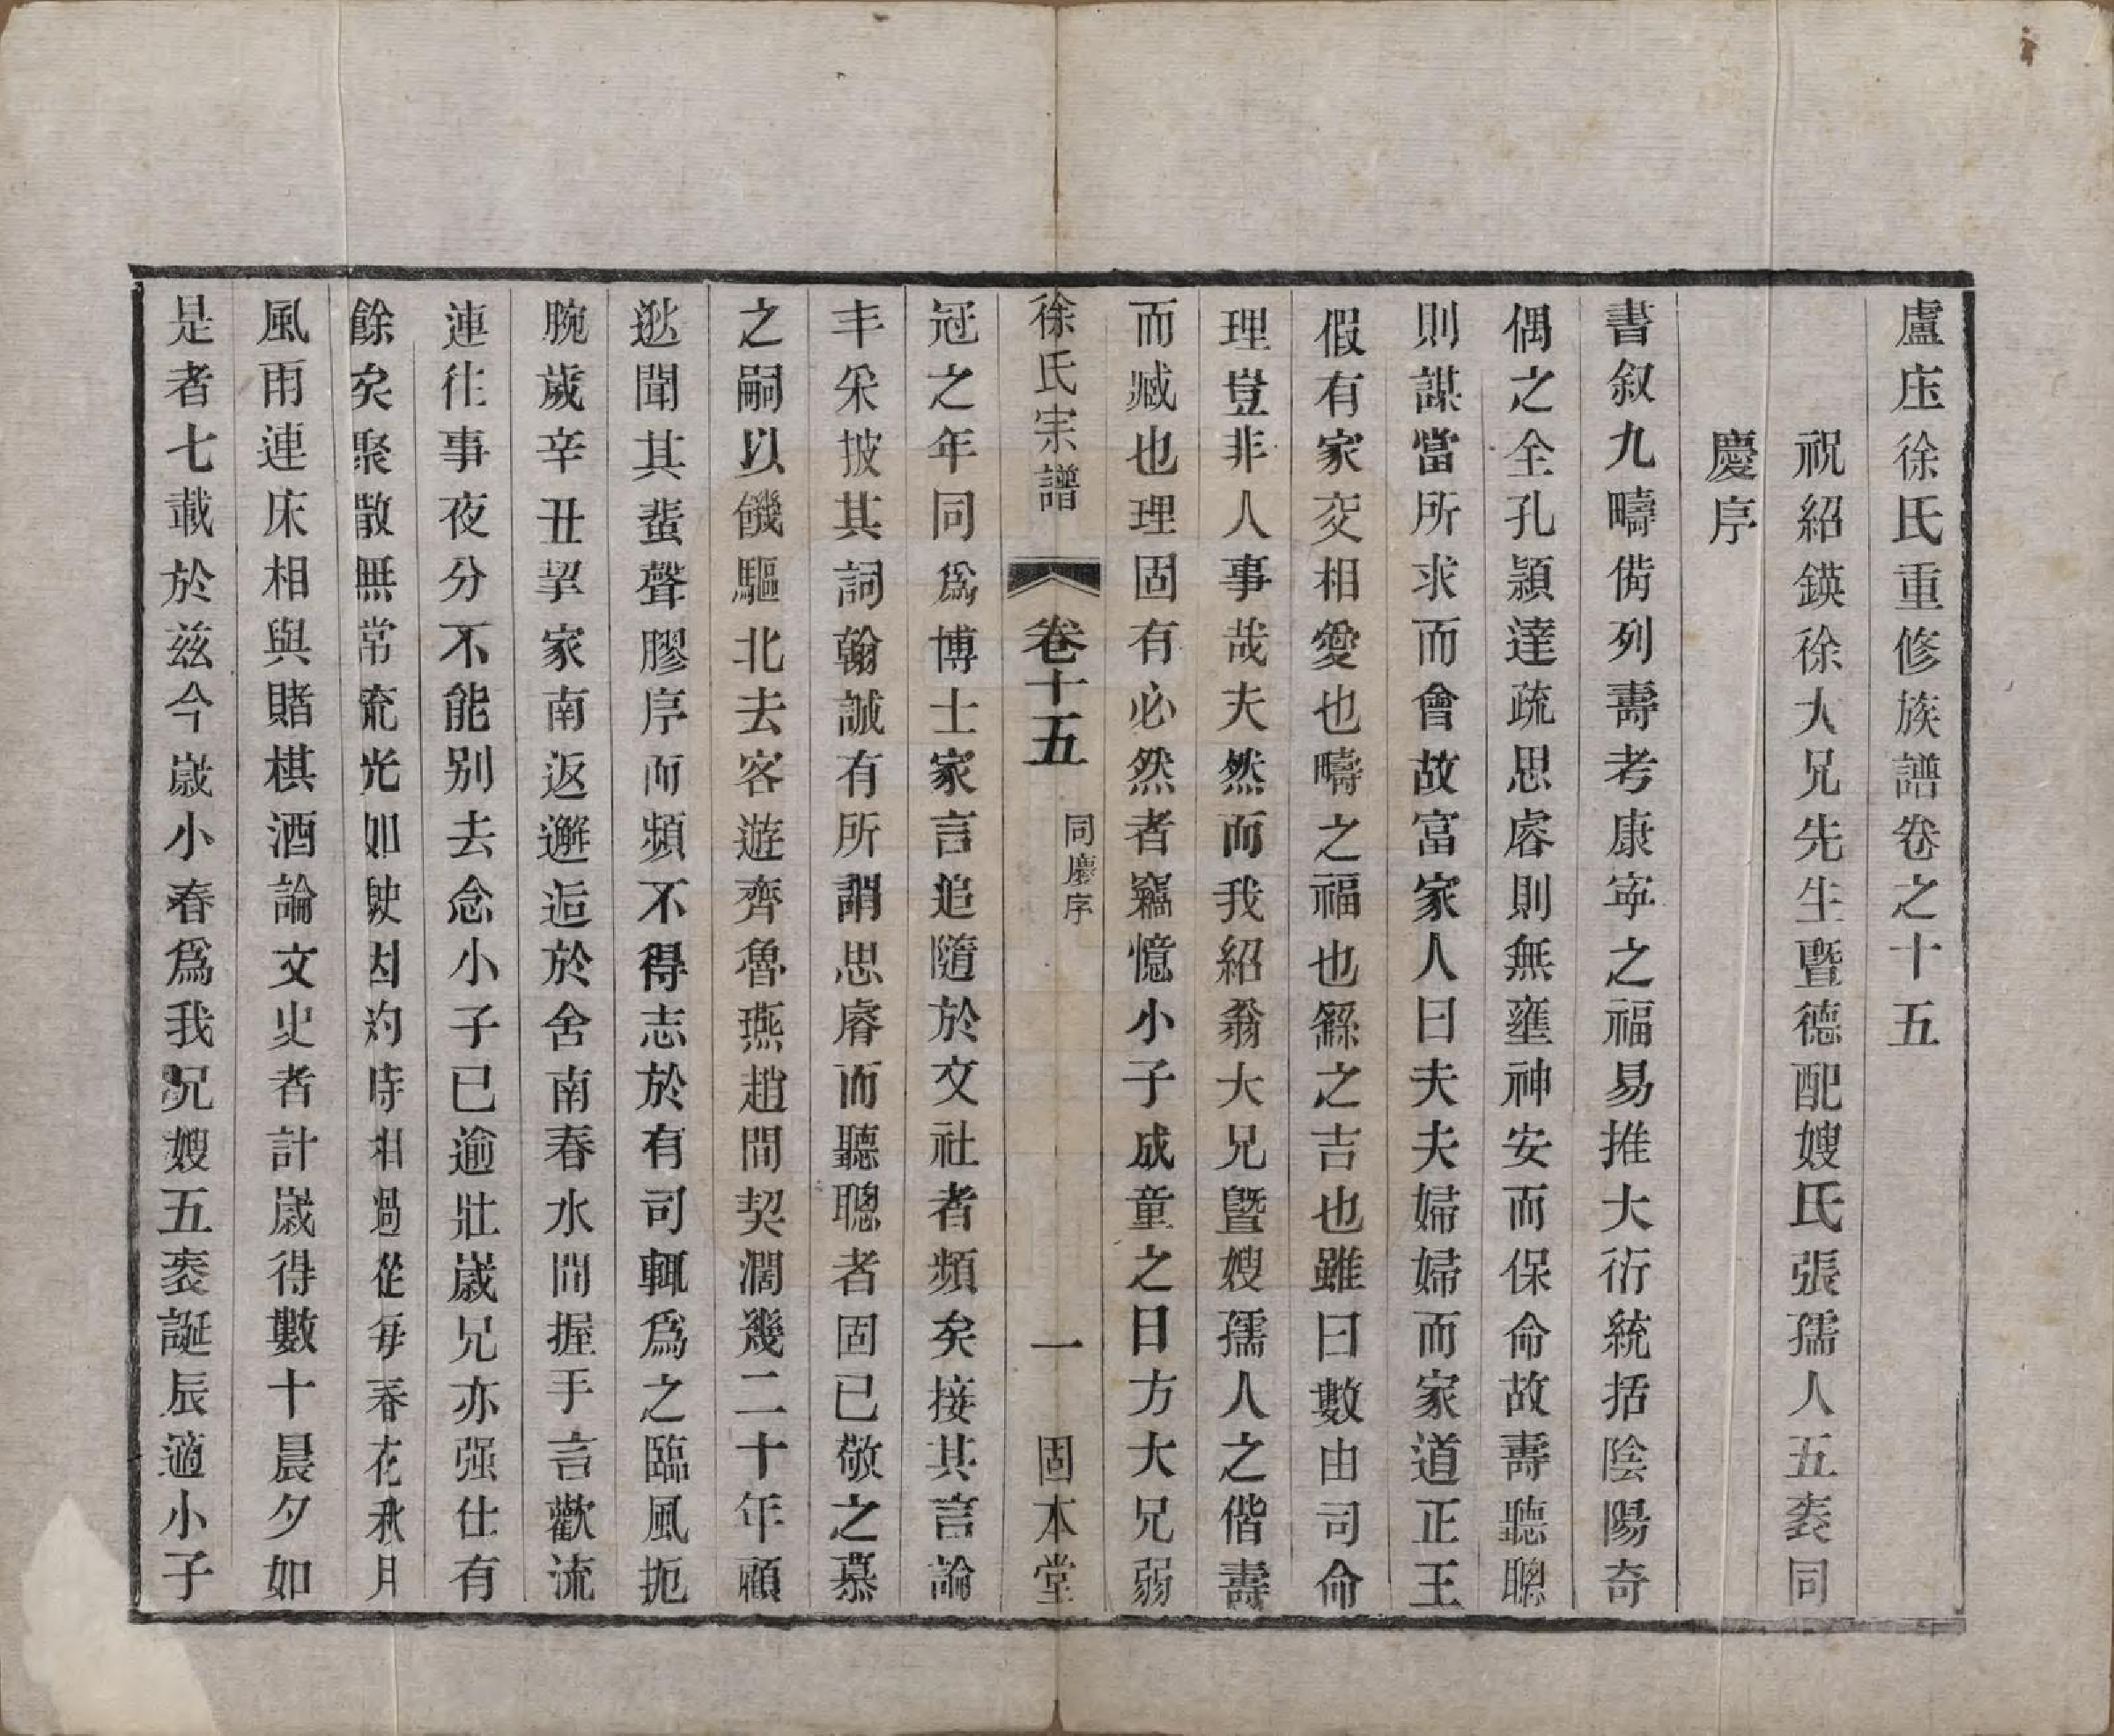 盧庒徐氏重修族譜卷之十五
祝紹鍈徐大兄先生暨德配嫂氏張孺人五袠同
慶序
書叙九疇僃列壽考康寍之福易推大衍統括陰陽奇
偶之全孔潁達疏思睿則無壅神安而保命故壽聽聰
則謀當所求而會故富家人曰夫夫婦婦而家道正王
假有家交相愛也疇之福也繇之吉也雖曰數由司命
理豈非人事哉夫然而我紹翁大兄暨嫂孺人之偕壽
而臧也理固有必然者竊憶小子成童之日方大兄弱
徐氏宗譜 卷十五 同慶序 一 固本堂
冠之年同爲博士家言追隨於文社者頻矣接其言論
丰采披其詞翰誠有所謂思睿而聽聰者固已敬之慕
之嗣以饑驅北去客遊齊魯燕趙間契濶幾二十年顧
逖聞其蜚聲膠序而頻不得志於有司輒爲之臨風扼
腕歲辛丑挈家南返邂逅於舍南春水間握手言歡流
連徃事夜分不能别去念小子已逾壯歲兄亦强仕有
餘矣聚散無常流光如駛因約時相過從每春花秋月
風雨連床相與賭棋酒論文史者計歲得數十晨夕如
是者七載於兹今歲小春爲我兄嫂五袠誕辰適小子